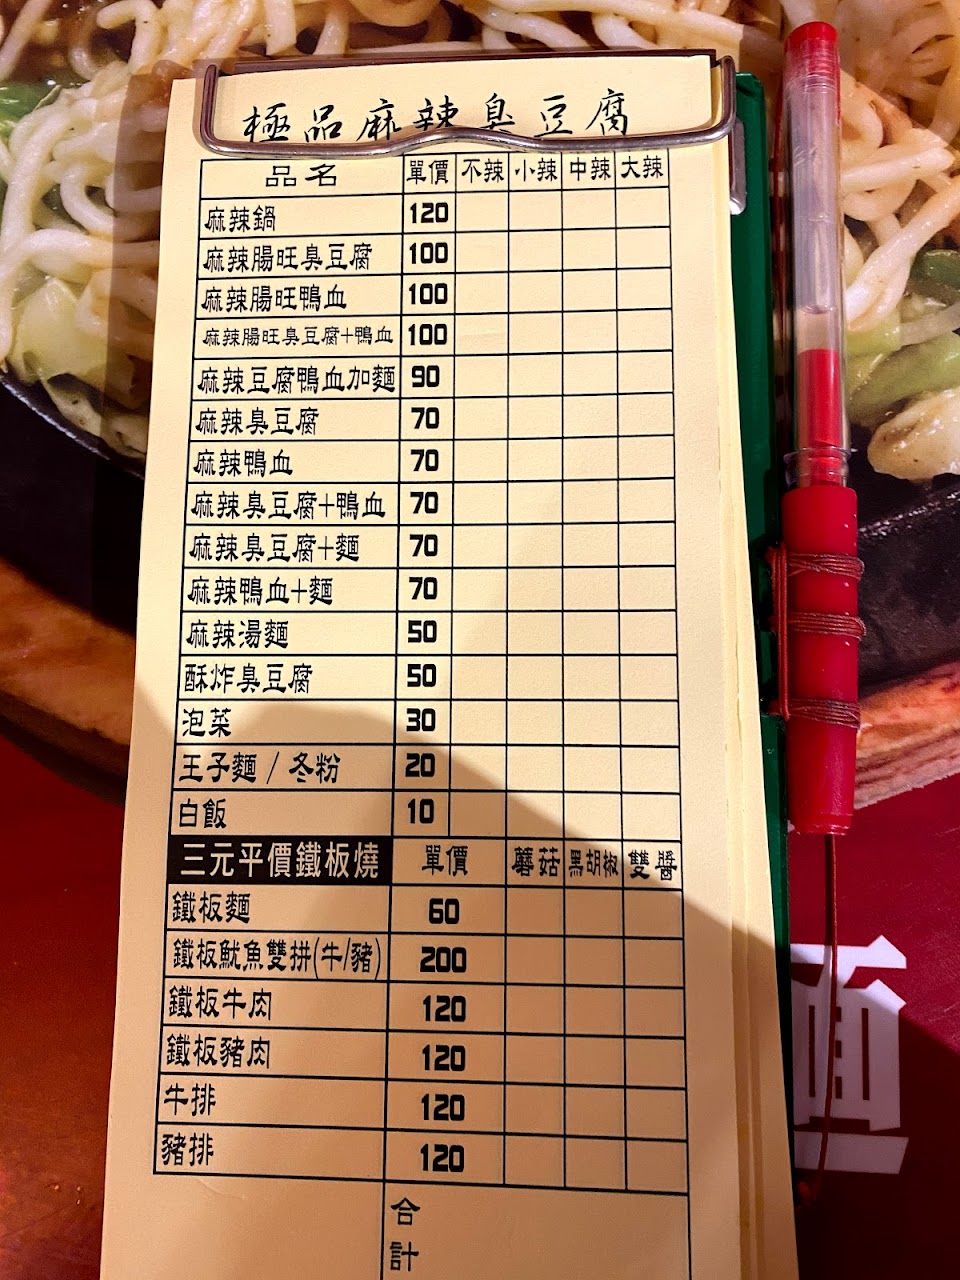 極品麻辣臭豆腐
品名 單價 不辣 小辣 中辣 大辣
麻辣鍋 120
麻辣腸旺臭豆腐 100
麻辣腸旺鴨血 100
麻辣腸旺臭豆腐+鴨血 100
麻辣豆腐鴨血加麵 90
麻辣臭豆腐 70
麻辣鴨血 70
麻辣臭豆腐+鴨血 70
麻辣臭豆腐+麵 70
麻辣鴨血+麵 70
麻辣湯麵 50
酥炸臭豆腐 50
泡菜 30
王子麵 / 冬粉 20
白飯 10
三元平價鐵板燒 單價 蘑菇 黑胡椒 雙醬
鐵板麵 60
鐵板魷魚雙拼(牛/豬) 200
鐵板牛肉 120
鐵板豬肉 120
牛排 120
豬排 120
合
計